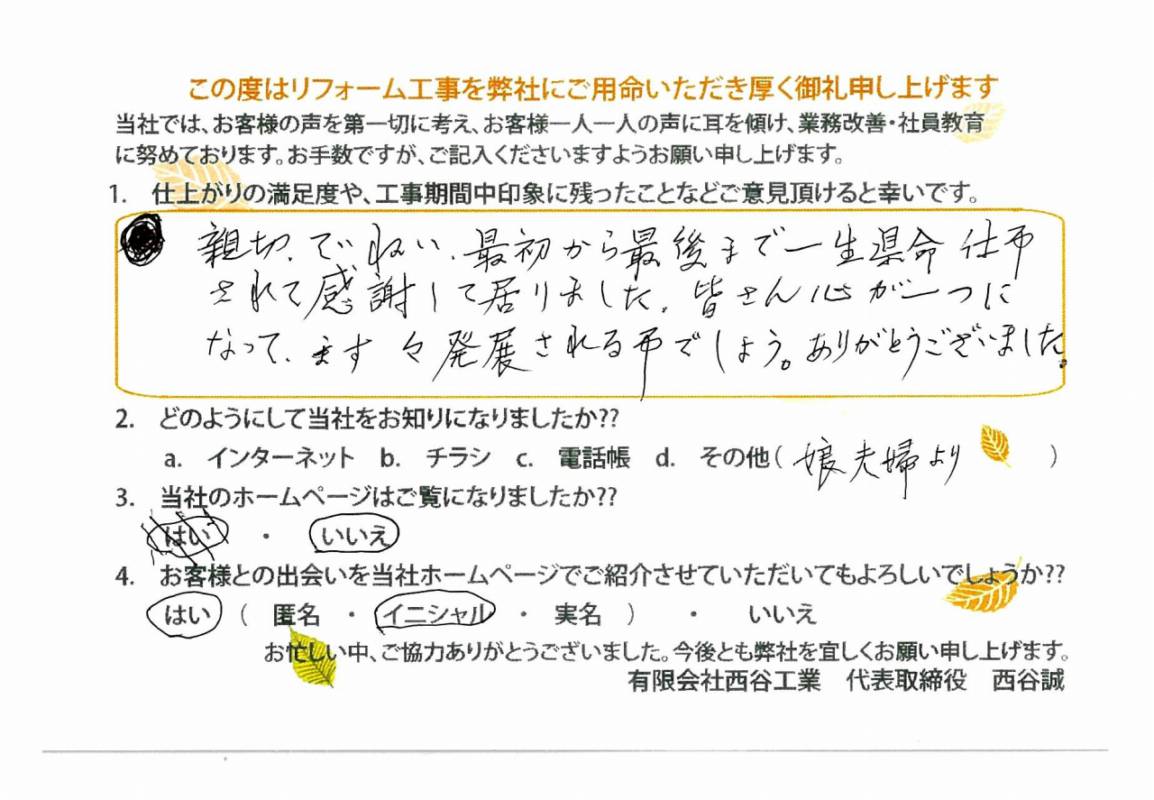 この度はリフォーム工事を弊社にご用命いただき厚く御礼申し上げます
当社では、お客様の声を第一切に考え、お客様一人一人の声に耳を傾け、業務改善・社員教育
に努めております。お手数ですが、ご記入くださいますようお願い申し上げます。
1. 仕上がりの満足度や、工事期間中印象に残ったことなどご意見頂けると幸いです。
親切、ていねい、最初から最後まで一生県命 仕事
されて感謝して居りました。皆さん心が一つに
なって、ます々発展される事でしょう。ありがとうございました。
2. どのようにして当社をお知りになりましたか??
a. インターネット b. チラシ c. 電話帳 d. その他( 娘夫婦より )
3. 当社のホームページはご覧になりましたか??
はい ・ いいえ
4. お客様との出会いを当社ホームページでご紹介させていただいてもよろしいでしょうか??
はい ( 匿名 ・ イニシャル ・ 実名 ) ・ いいえ
お忙しい中、ご協力ありがとうございました。今後とも弊社を宜しくお願い申し上げます。
有限会社西谷工業 代表取締役 西谷誠